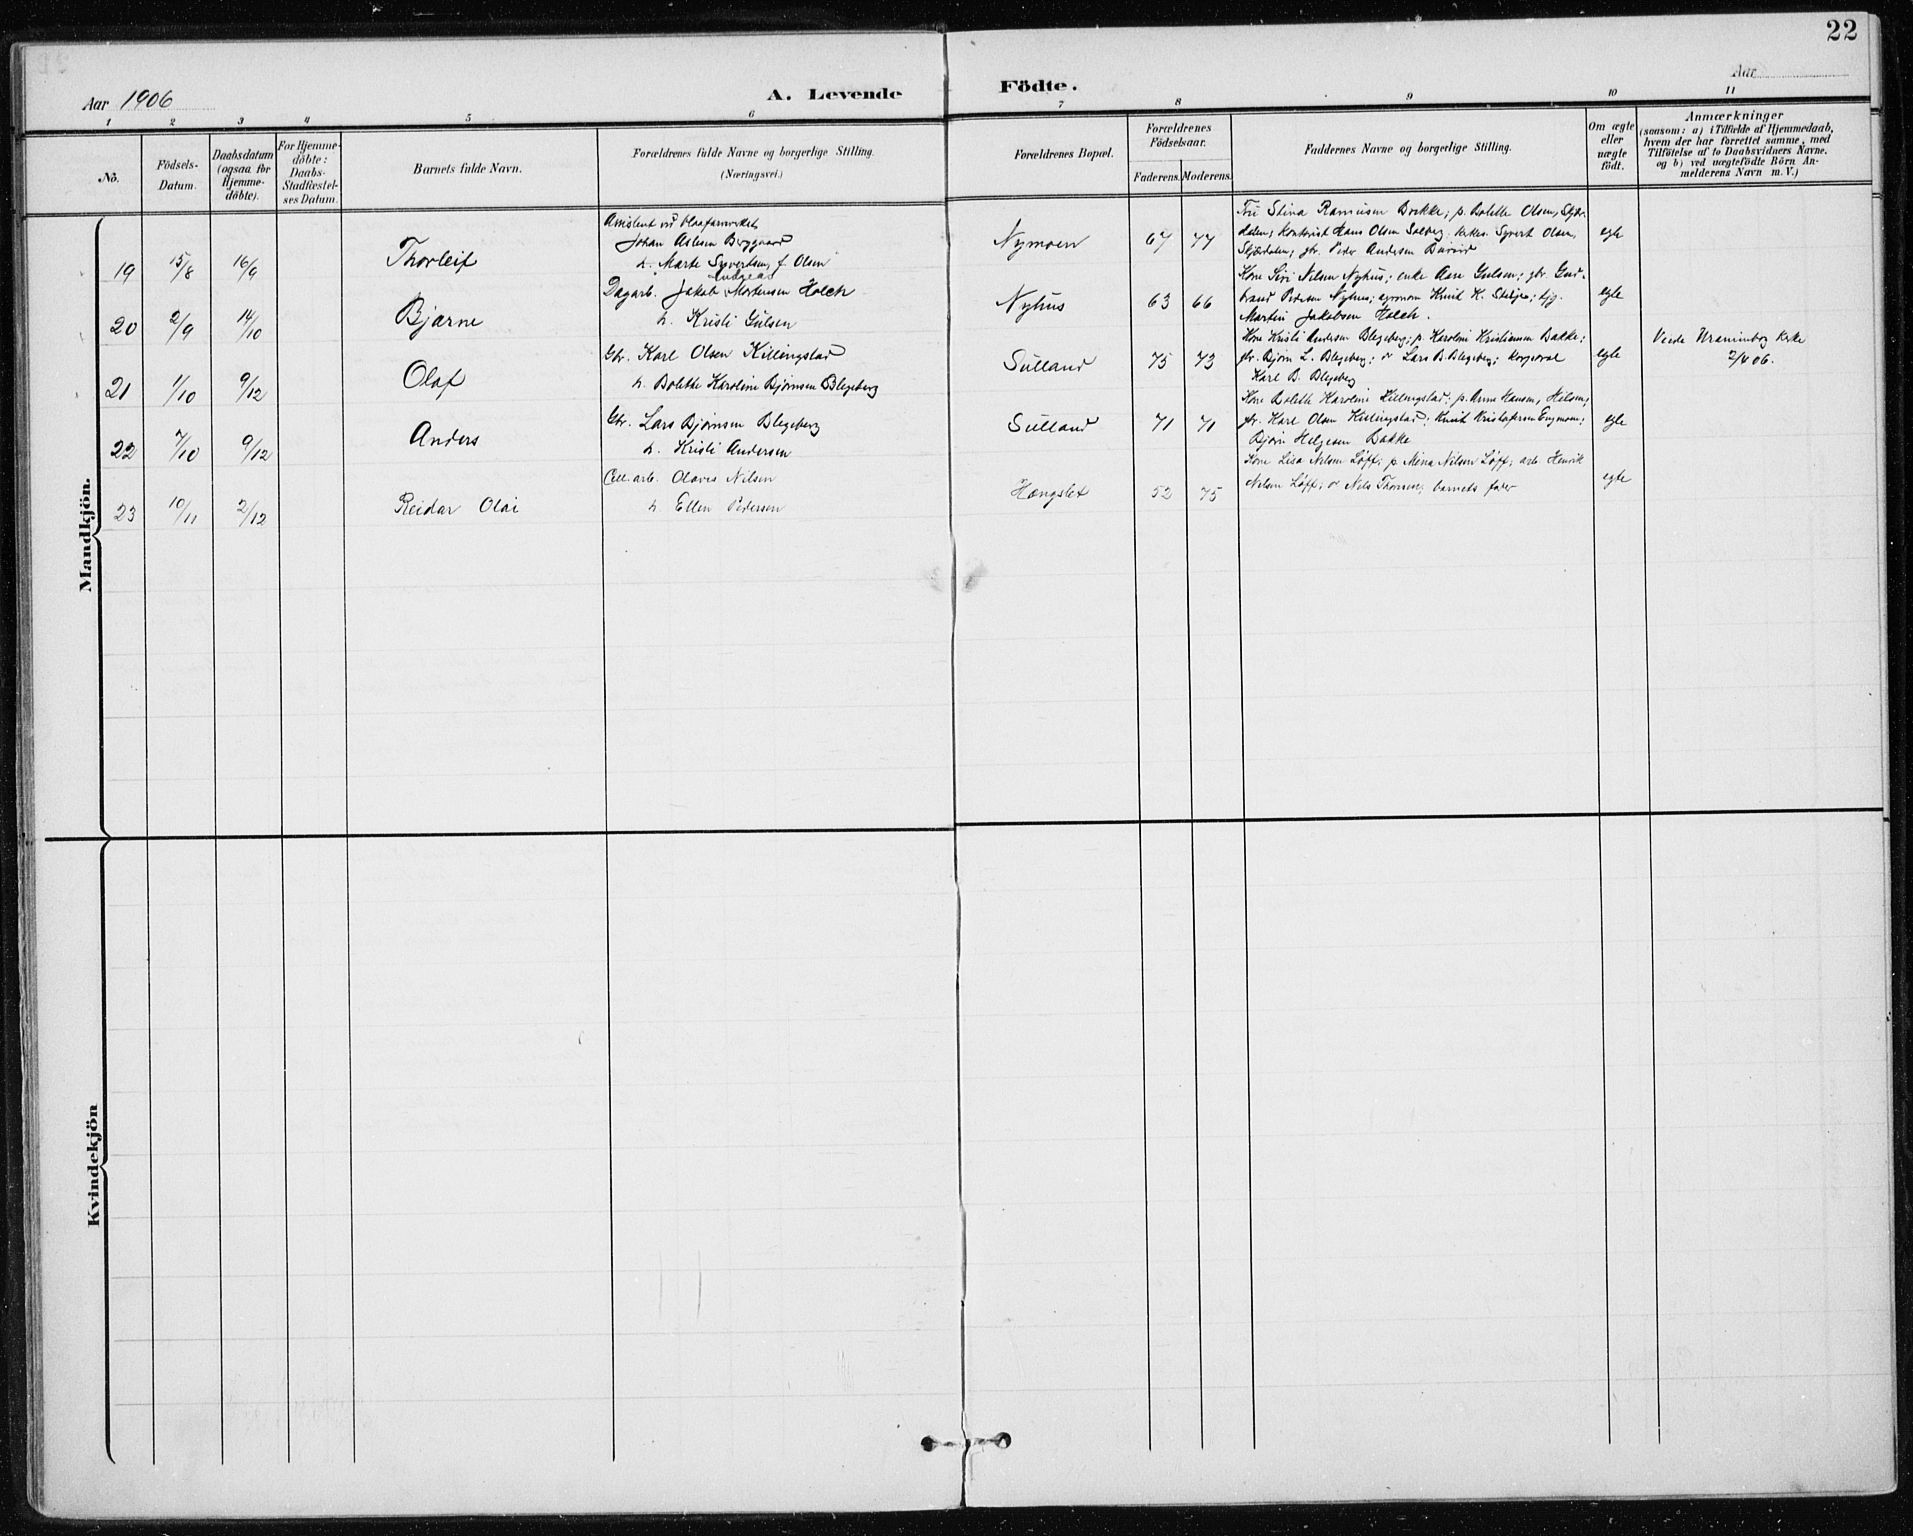 22
Aar 1906
A. Levende Födte.
Aar
1 2 3 4 5 6 7 8 9 10 11
No.
Födsels-
Datum.
Daabsdatum
(ogsaa for
Hjemme-
döbte).
For Hjemme-
döbte:
Daabs-
Stadfæstel-
ses Datum.
Barnets fulde Navn.
Forældrenes fulde Navne og borgerlige Stilling.
(Næringsvei.)
Forældrenes Bopæl.
Forældrenes
Födselsaar.
Faderens. Moderens.
Faddernes Navne og borgerlige Stilling.
Om ægte
eller
uægte
födt.
Anmærkninger
(saasom: a) i Tilfælde af Hjemmedaab,
hvem der har forrettet samme, med
Tilföielse af to Daabsvidners Navne.
og b) ved uægtefödte Börn An-
melderens Navn m. V.)
Mandkjön.
19 15/8 16/9 Thorleif
Assistent ved Blaafarveverket
Johan Aslesen Berggaard
h. Marte Syvertsen, f. Olsen
Nymoen 67 77
Fru Stina Rasmusen Bakke; p. Bolette Olsen, Skjær-
dalen; kontorist Hans Olsen Solberg; Syvert Olsen,
Skjærdalen; gbr. Peder Andersen
egte
20 2/9 14/10 Bjarne
Dagarb. Jakob Mortensen Holch
h. Kristi Gulsen
Nyhus 63 66
Kone Siri Nilsen Nyhus; enke Aase Gulsen; gbr. Gud-
brand Pedersen Nyhus; agronom Knut K.
Martin Jakobsen Holch.
egte
21 1/10 9/12 Olaf
Gbr. Karl Olsen Killingstad
h. Bolette Karoline Bjørnsen Blegeberg
Sulland 75 73
Kone Kristi Andersen Blegeberg; p. Karoline Kristiansen Bakke;
gbr. Bjørn L. Blegeberg; Lars B. Blegeberg; korporal
Karl B. Blegeberg
egte
Viede Uranienborg kirke
2/4 06.
22 7/10 9/12 Anders
Gbr. Lars Bjørnsen Blegeberg
h. Kristi Andersen
Sulland 71 71
Kone Bolette Karoline Killingstad; p. Anna Hansen,
gbr. Karl Olsen Killingstad; Knut Kristofersen Engmoen;
Bjørn Helgesen Bakke
egte
23 10/11 2/12 Reidar Olai
Cell. arb. Olavis Nilsen
h. Ellen Pedersen
Hængslet 52 75
Kone Lisa Nilsen Løft; p. Mina Nilsen Løft; arb. Henrik
Nilsen Løft; Nils Thorsen; barnets fader
egte
Kvindekjön